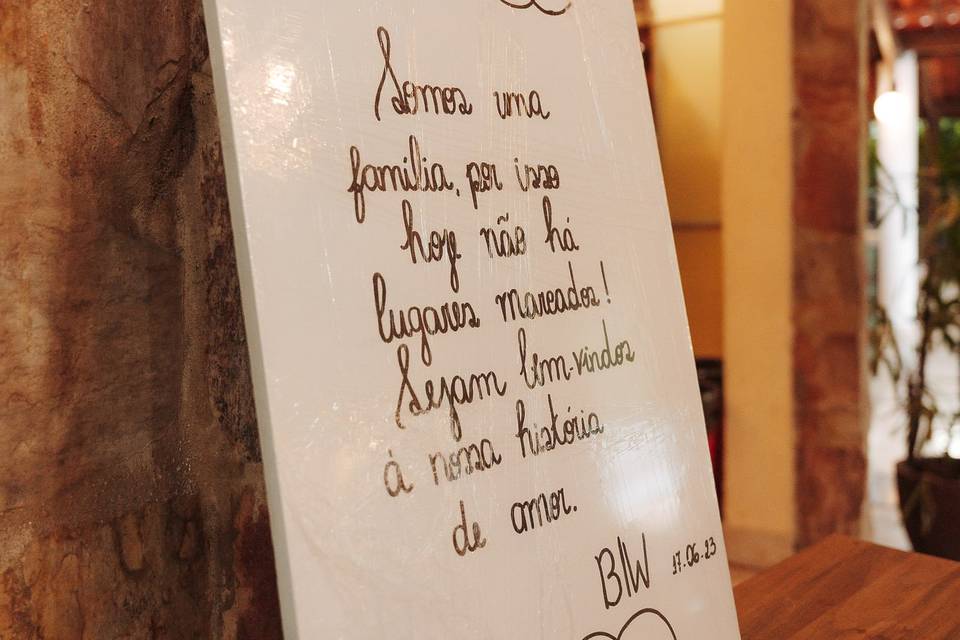 Somos uma
família, por isso
hoje não há
lugares marcados!
Sejam bem-vindos
à nossa história
de amor.
B|W 17.06.23